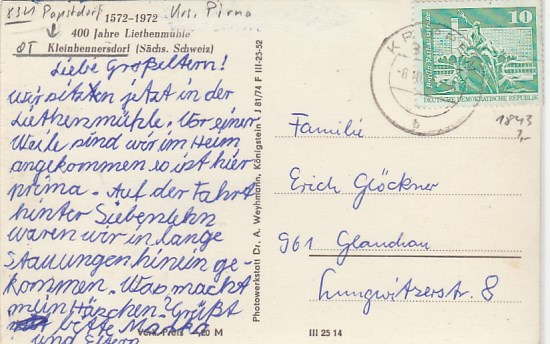 8321 Papstdorf Krs. Pirna
1572-1972
400 Jahre Liethenmühle
OT Kleinhennersdorf (Sächs. Schweiz)
Liebe Großeltern!
Wir sitzten jetzt in der
Liethenmühle. Vor einer
Weile sind wir im Heim
angekommen es ist hier
prima. Auf der Fahrt
hinter Siebenlehn
waren wir in lange
Stauungen hinein ge-
kommen. Was macht
mein Häschen? Grüßt
bitte Maska
und Eltern
Verk.-Preis -,20 M
Photowerkstatt Dr. A. Weyhmann, Königstein J 81/74 F III-25-52
10
Berlin, Rathausstraße
DEUTSCHE DEMOKRATISCHE REPUBLIK
b
1843
Familie
Erich Glöckner
961 Glauchau
Lungwitzerstr. 8
III 25 14